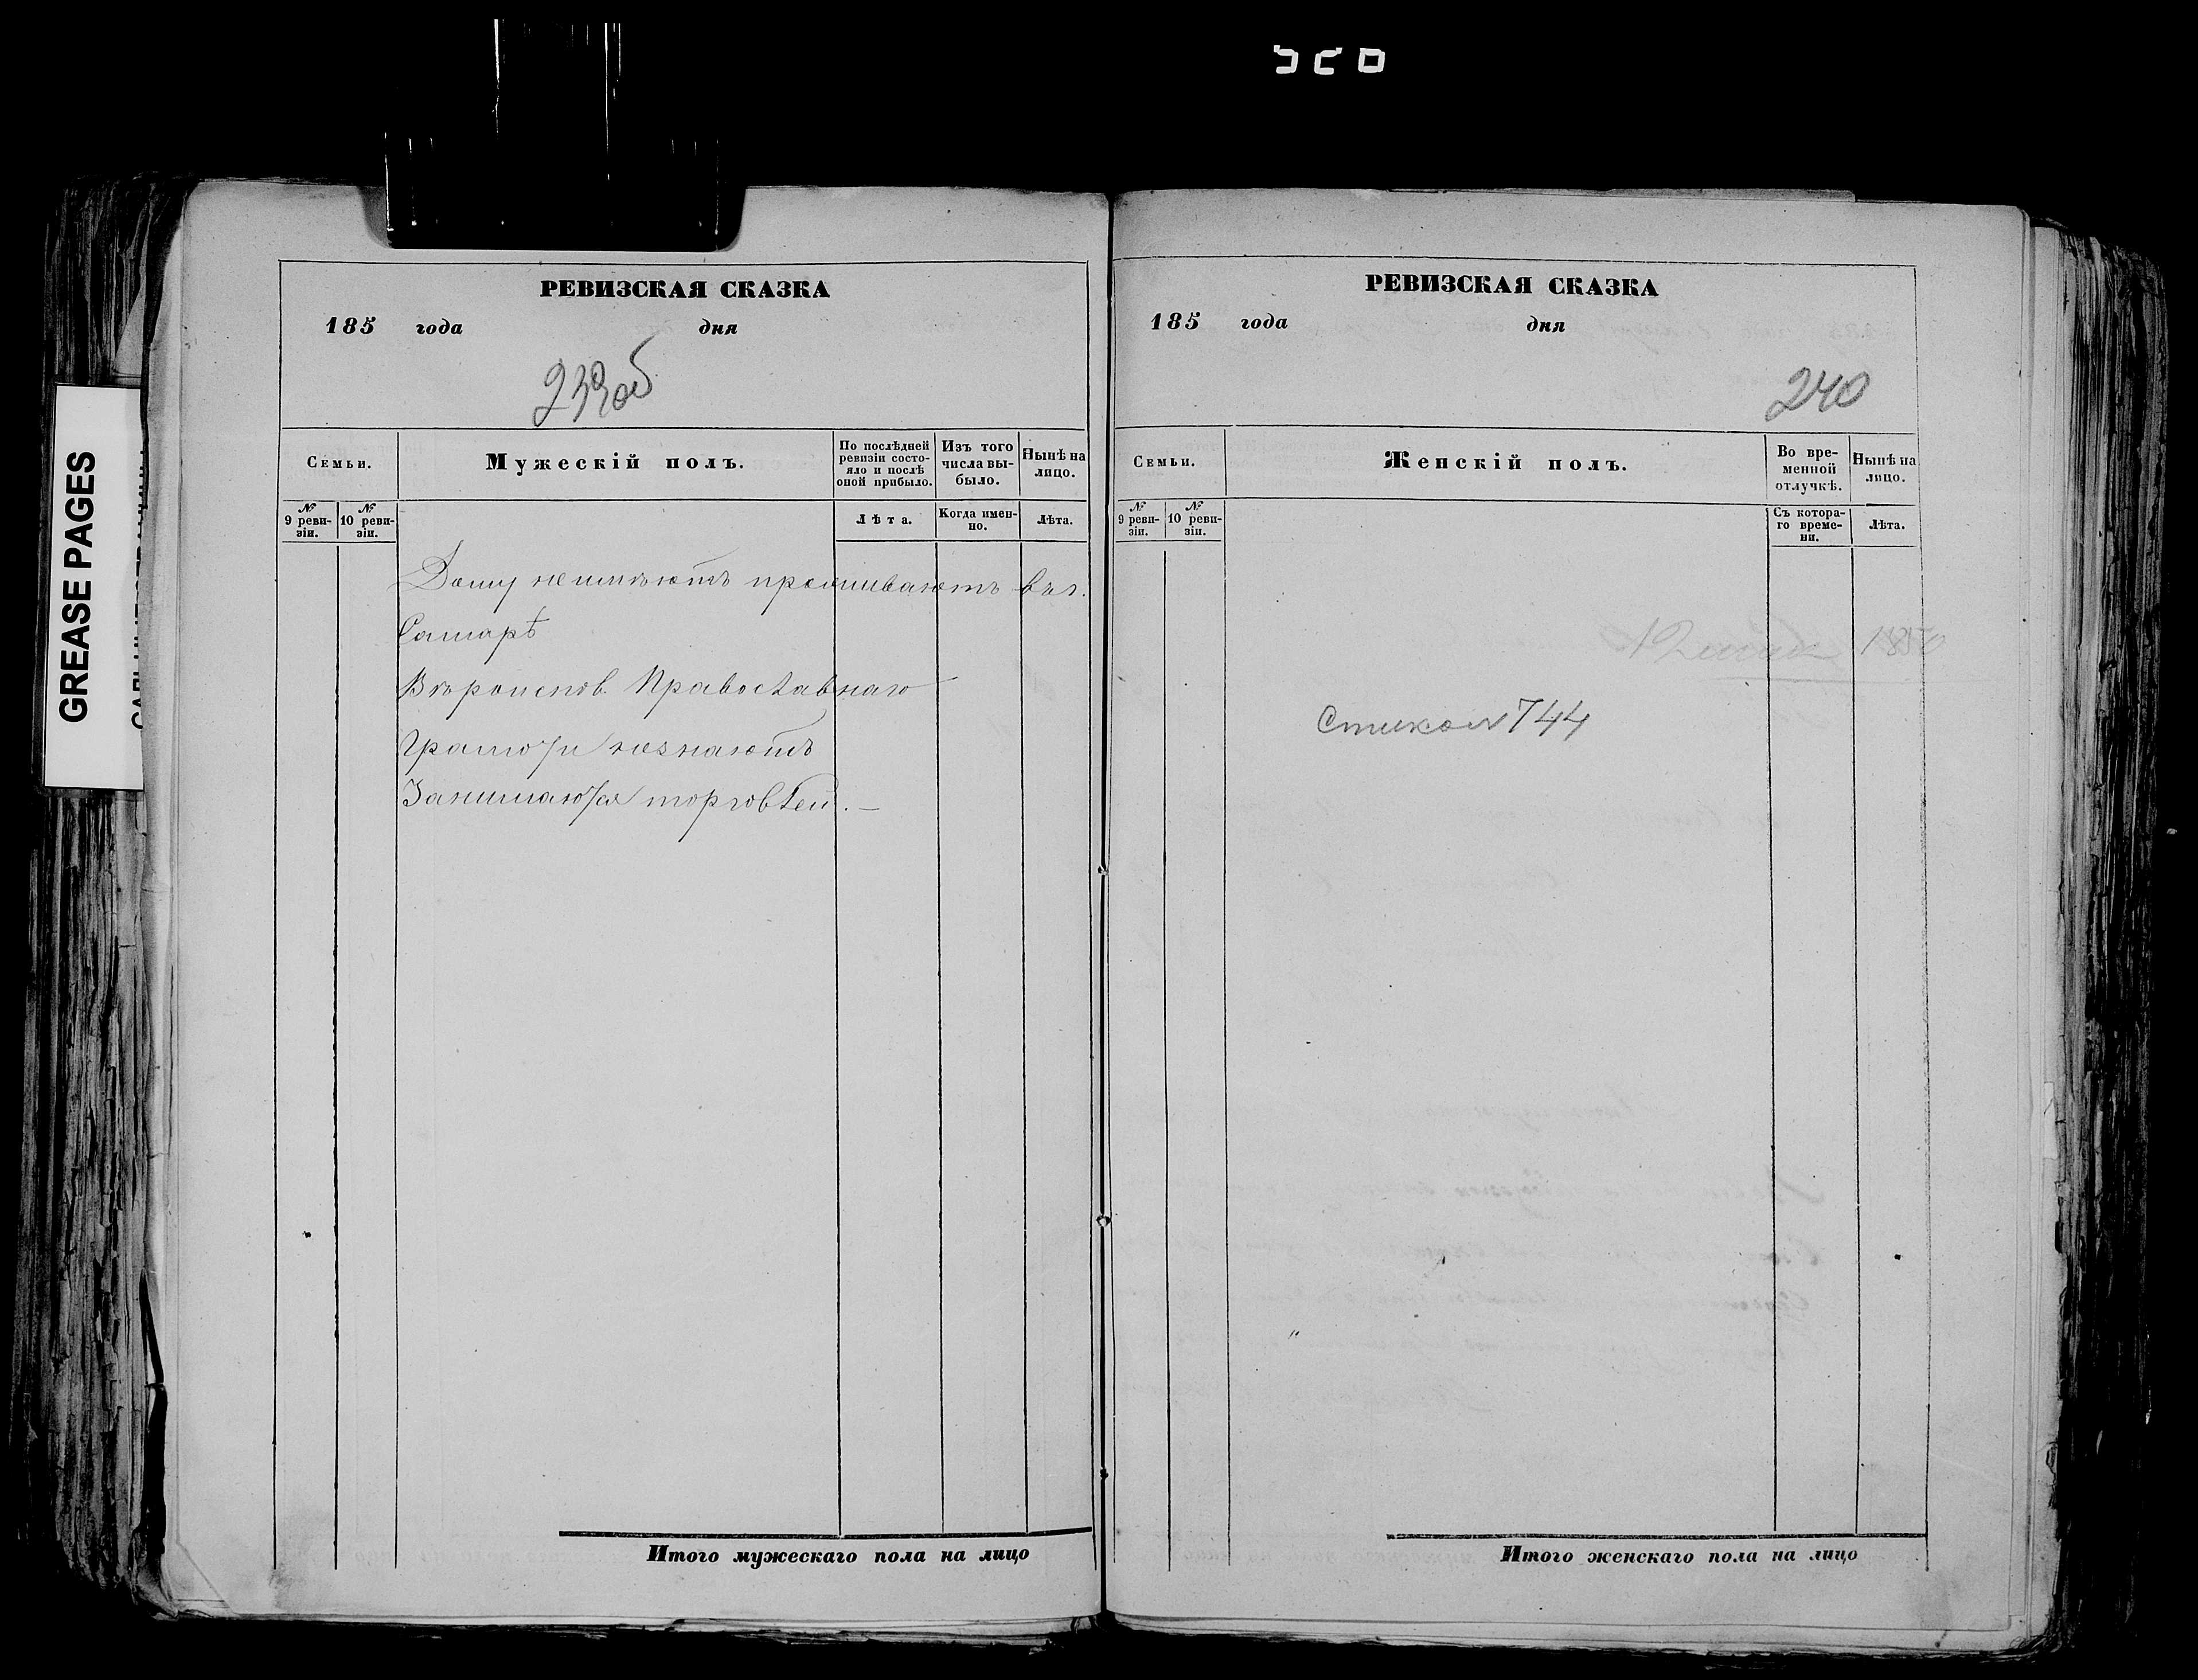 GREASE PAGES
РЕВИЗСКАЯ СКАЗКА
185 года дня
239об
Семьи.
Мужескій полъ.
По послѣдней ревизіи состояло и послѣ оной прибыло.
Изъ того числа выбыло.
Нынѣ на лицо.
№ 9 ревизіи.
№ 10 ревизіи.
Лѣта.
Когда именно.
Лѣта.
Дому неимѣютъ проживаютъ въ г.
Самарѣ
Вѣроиспов. Православнаго
Грамоти незнаютъ
Занимаются торговлей. —
Итого мужескаго пола на лицо
РЕВИЗСКАЯ СКАЗКА
185 года дня
240
Семьи.
Женскій полъ.
Во временной отлучкѣ.
Нынѣ на лицо.
№ 9 ревизіи.
№ 10 ревизіи.
Съ котораго времени.
Лѣта.
744
Итого женскаго пола на лицо